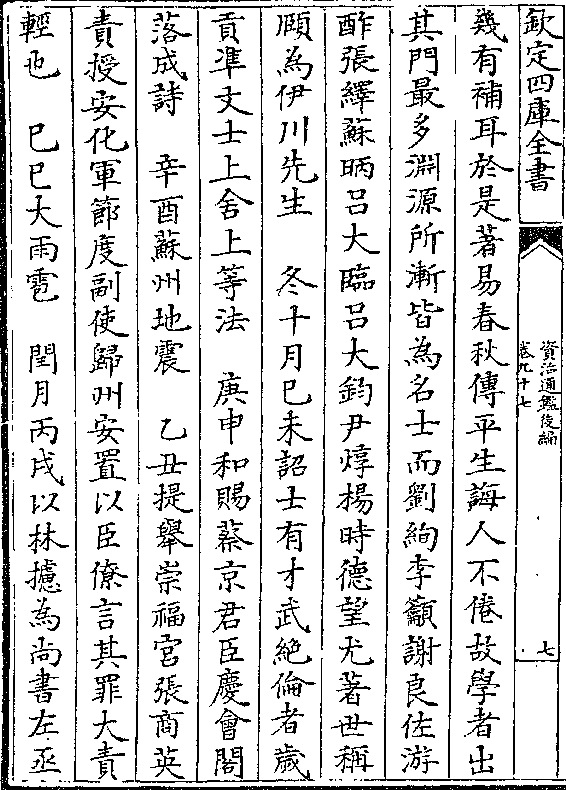 欽定四庫全書
資治通鑑後編
卷九十七
七
幾有補耳於是著易春秋傳平生誨人不倦故學者出
其門最多淵源所漸皆為名士而劉絢李籲謝良佐游
酢張繹蘇昞呂大臨呂大鈞尹焞楊時德望尤著世稱
頤為伊川先生　冬十月己未詔士有才武絶倫者歲
貢凖文士上舍上等法　庚申和賜蔡京君臣慶會閣
落成詩　辛酉蘇州地震　乙丑提舉崇福宫張商英
責授安化軍節度副使歸州安置以臣僚言其罪大責
輕也　己巳大雨雹　閏月丙戌以林攄為尚書左丞